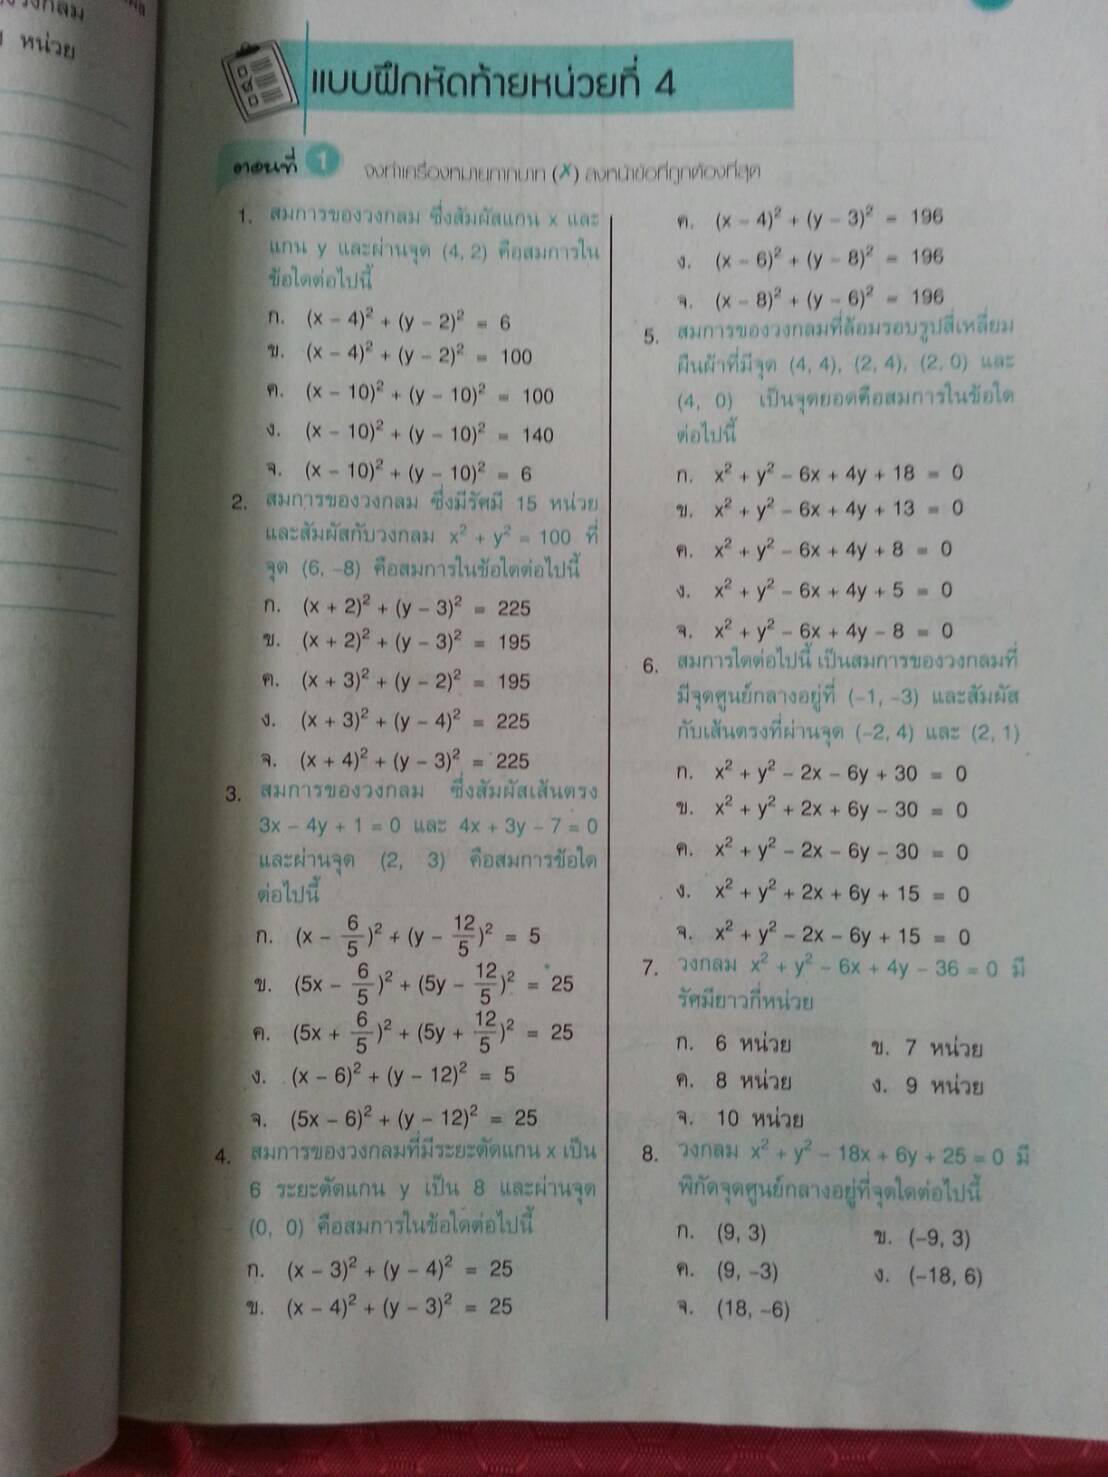 หน่วย
แบบฝึกหัดท้ายหน่วยที่ 4
ตอนที่ 1 จงทำเครื่องหมายกากบาท (✗) ลงหน้าข้อที่ถูกต้องที่สุด
1. สมการของวงกลม ซึ่งสัมผัสแกน x และ
แกน y และผ่านจุด (4, 2) คือสมการใน
ข้อใดต่อไปนี้
ก. (x – 4)² + (y – 2)² = 6
ข. (x – 4)² + (y – 2)² = 100
ค. (x – 10)² + (y – 10)² = 100
ง. (x – 10)² + (y – 10)² = 140
จ. (x – 10)² + (y – 10)² = 6
2. สมการของวงกลม ซึ่งมีรัศมี 15 หน่วย
และสัมผัสกับวงกลม x² + y² = 100 ที่
จุด (6, –8) คือสมการในข้อใดต่อไปนี้
ก. (x + 2)² + (y – 3)² = 225
ข. (x + 2)² + (y – 3)² = 195
ค. (x + 3)² + (y – 2)² = 195
ง. (x + 3)² + (y – 4)² = 225
จ. (x + 4)² + (y – 3)² = 225
3. สมการของวงกลม ซึ่งสัมผัสเส้นตรง
3x – 4y + 1 = 0 และ 4x + 3y – 7 = 0
และผ่านจุด (2, 3) คือสมการข้อใด
ต่อไปนี้
ก. (x – 6/5)² + (y – 12/5)² = 5
ข. (5x – 6/5)² + (5y – 12/5)² = 25
ค. (5x + 6/5)² + (5y + 12/5)² = 25
ง. (x – 6)² + (y – 12)² = 5
จ. (5x – 6)² + (y – 12)² = 25
4. สมการของวงกลมที่มีระยะตัดแกน x เป็น
6 ระยะตัดแกน y เป็น 8 และผ่านจุด
(0, 0) คือสมการในข้อใดต่อไปนี้
ก. (x – 3)² + (y – 4)² = 25
ข. (x – 4)² + (y – 3)² = 25
ค. (x – 4)² + (y – 3)² = 196
ง. (x – 6)² + (y – 8)² = 196
จ. (x – 8)² + (y – 6)² = 196
5. สมการของวงกลมที่ล้อมรอบรูปสี่เหลี่ยม
ผืนผ้าที่มีจุด (4, 4), (2, 4), (2, 0) และ
(4, 0) เป็นจุดยอดคือสมการในข้อใด
ต่อไปนี้
ก. x² + y² – 6x + 4y + 18 = 0
ข. x² + y² – 6x + 4y + 13 = 0
ค. x² + y² – 6x + 4y + 8 = 0
ง. x² + y² – 6x + 4y + 5 = 0
จ. x² + y² – 6x + 4y – 8 = 0
6. สมการใดต่อไปนี้ เป็นสมการของวงกลมที่
มีจุดศูนย์กลางอยู่ที่ (–1, –3) และสัมผัส
กับเส้นตรงที่ผ่านจุด (–2, 4) และ (2, 1)
ก. x² + y² – 2x – 6y + 30 = 0
ข. x² + y² + 2x + 6y – 30 = 0
ค. x² + y² – 2x – 6y – 30 = 0
ง. x² + y² + 2x + 6y + 15 = 0
จ. x² + y² – 2x – 6y + 15 = 0
7. วงกลม x² + y² – 6x + 4y – 36 = 0 มี
รัศมียาวกี่หน่วย
ก. 6 หน่วย ข. 7 หน่วย
ค. 8 หน่วย ง. 9 หน่วย
จ. 10 หน่วย
8. วงกลม x² + y² – 18x + 6y + 25 = 0 มี
พิกัดจุดศูนย์กลางอยู่ที่จุดใดต่อไปนี้
ก. (9, 3) ข. (–9, 3)
ค. (9, –3) ง. (–18, 6)
จ. (18, –6)